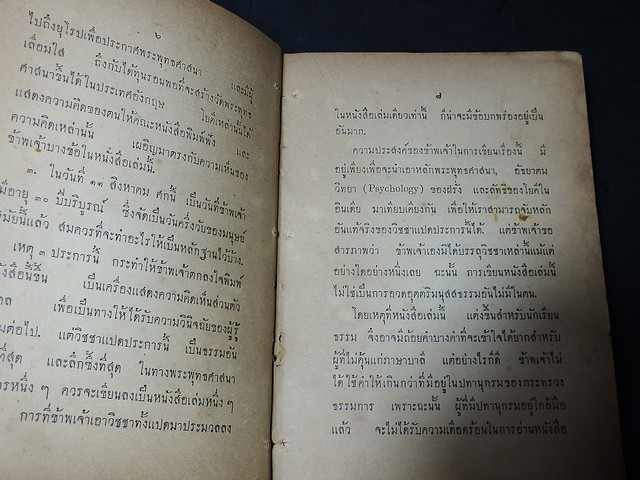 ๖
ไปถึงยุโรปเพื่อประกาศพระพุทธศาสนา และมีผู้
เลื่อมใส ถึงกับได้ทุนรอนพอที่จะสร้างวัดพระพุทธ
ศาสนาขึ้นได้ในประเทศอังกฤษ โยคีเหล่านั้นได้
แสดงความคิดของตนให้คณะหนังสือพิมพ์ฟัง และ
ความคิดเหล่านั้น เผอิญมาตรงกับความเห็นของ
ข้าพเจ้าบางข้อในหนังสือเล่มนี้.
๓. ในวันที่ ๑๑ สิงหาคม ศกนี้ เป็นวันที่ข้าพเจ้า
มีอายุ ๓๐ ปีบริบูรณ์ ซึ่งจัดเป็นวันครึ่งวัยของมนุษย์
มัยนี้แล้ว สมควรที่จะทำอะไรให้เป็นหลักฐานไว้บ้าง.
เหตุ ๓ ประการนี้ กระทำให้ข้าพเจ้าตกลงใจพิมพ์
ังสือนี้ขึ้น เป็นเครื่องแสดงความคิดเห็นส่วนตัว
คล เพื่อเป็นทางให้ได้รับความวินิจฉัยของผู้รู้
มต่อไป. แต่วิชชาแปดประการนี้ เป็นธรรมอัน
ที่สุด และลึกซึ้งที่สุด ในทางพระพุทธศาสนา
ารหนึ่ง ๆ ควรจะเขียนลงเป็นหนังสือเล่มหนึ่ง ๆ
การที่ข้าพเจ้าเอาวิชชาทั้งแปดมาประมวลลง
๗
ในหนังสือเล่มเดียวเท่านี้ ก็น่าจะมีข้อบกพร่องอยู่เป็น
อันมาก.
ความประสงค์ของข้าพเจ้าในการเขียนเรื่องนี้ มี
อยู่เพียงเพื่อจะนำเอาหลักพระพุทธศาสนา, อัธยาตม
วิทยา (Psychology) ของฝรั่ง และลัทธิของโยคีใน
อินเดีย มาเทียบเคียงกัน เพื่อให้เราสามารถจับหลัก
อันแท้จริงของวิชชาแปดประการนี้ได้. แต่ข้าพเจ้าขอ
สารภาพว่า ข้าพเจ้าเองมิได้บรรลุวิชชาเหล่านี้แม้แต่
อย่างใดอย่างหนึ่งเลย ฉะนั้น การเขียนหนังสือเล่มนี้
ไม่ใช่เป็นการอวดอุตตริมนุสสธรรมอันไม่มีในตน.
โดยเหตุที่หนังสือเล่มนี้ แต่งขึ้นสำหรับนักเรียน
ธรรม จึงอาจมีถ้อยคำบางคำที่จะเข้าใจได้ยากสำหรับ
ผู้ที่ไม่คุ้นแก่ภาษาบาลี แต่อย่างไรก็ดี ข้าพเจ้าไม่
ได้ใช้คำให้เกินกว่าที่มีอยู่ในปทานุกรมของกระทรวง
ธรรมการ เพราะฉะนั้น ผู้ที่มีปทานุกรมอยู่ใกล้มือ
แล้ว จะไม่ได้รับความเดือดร้อนในการอ่านหนังสือ